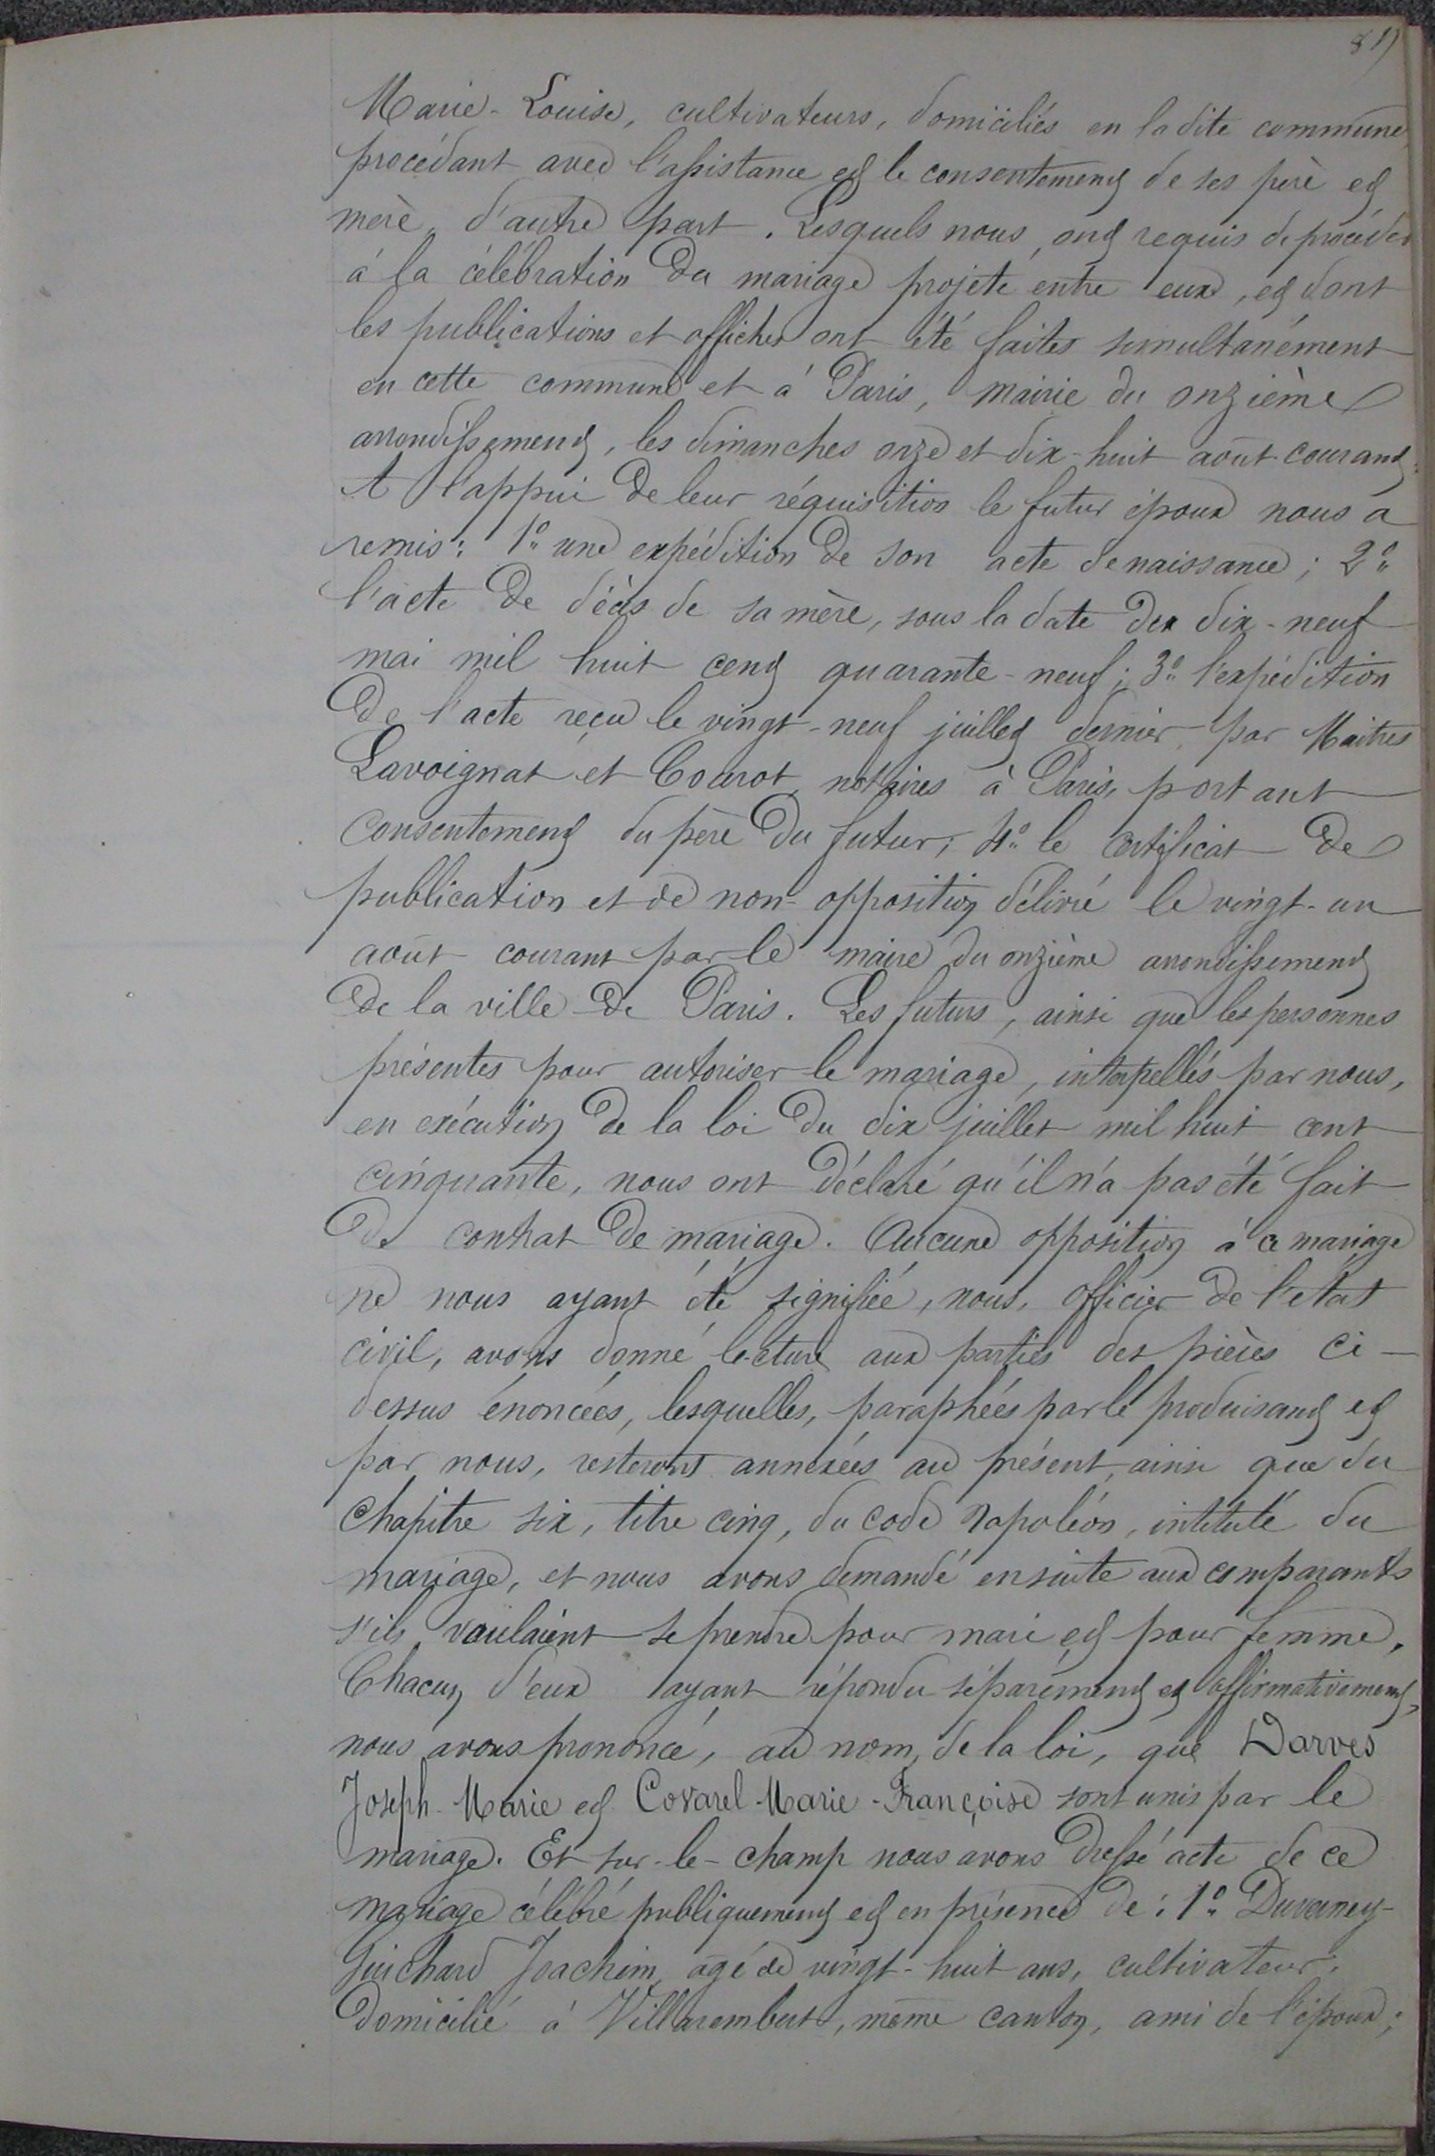 Marie-Louise, cultivateurs, domiciliés en la dite commune,
procédant avec l'assistance et le consentement de ses père et
mère, d'autre part. Lesquels nous ont requis de procéder
à la célébration du mariage projeté entre eux, et dont
les publications et affiches ont été faites simultanément
en cette commune et à Paris, mairie du onzième
arrondissement, les dimanches onze et dix-huit août courant.
A l'appui de leur réquisition le futur époux nous a
remis: 1° une expédition de son acte de naissance; 2°
l'acte de décès de sa mère, sous la date du dix-neuf
mai mil huit cent quarante-neuf; 3° l'expédition
de l'acte reçu le vingt-neuf juillet dernier, par Maîtres
Lavoignat et Courot, notaires à Paris, portant
consentement du père du futur; 4° le certificat de
publication et de non-opposition délivré le vingt-un
août courant par le maire du onzième arrondissement
de la ville de Paris. Les futurs, ainsi que les personnes
présentes pour autoriser le mariage, interpellés par nous,
en exécution de la loi du dix juillet mil huit cent
cinquante, nous ont déclaré qu'il n'a pas été fait
de contrat de mariage. Aucune opposition à ce mariage
ne nous ayant été signifiée, nous, officier de l'état
civil, avons donné lecture aux parties des pièces ci-
dessus énoncées, lesquelles, paraphées par le produisant et
par nous, resteront annexées au présent, ainsi que du
chapitre six, titre cinq, du code Napoléon, intitulé du
mariage, et nous avons demandé ensuite aux comparants
s'ils voulaient se prendre pour mari et pour femme.
Chacun d'eux ayant répondu séparément et affirmativement,
nous avons prononcé, au nom de la loi, que Darves
Joseph-Marie et Covarel Marie-Françoise sont unis par le
mariage. Et sur-le-champ nous avons dressé acte de ce
mariage célébré publiquement et en présence de: 1° Duverney-
Guichard Joachim, agé de vingt-huit ans, cultivateur,
domicilié à Villarembert, même canton, ami de l'époux;